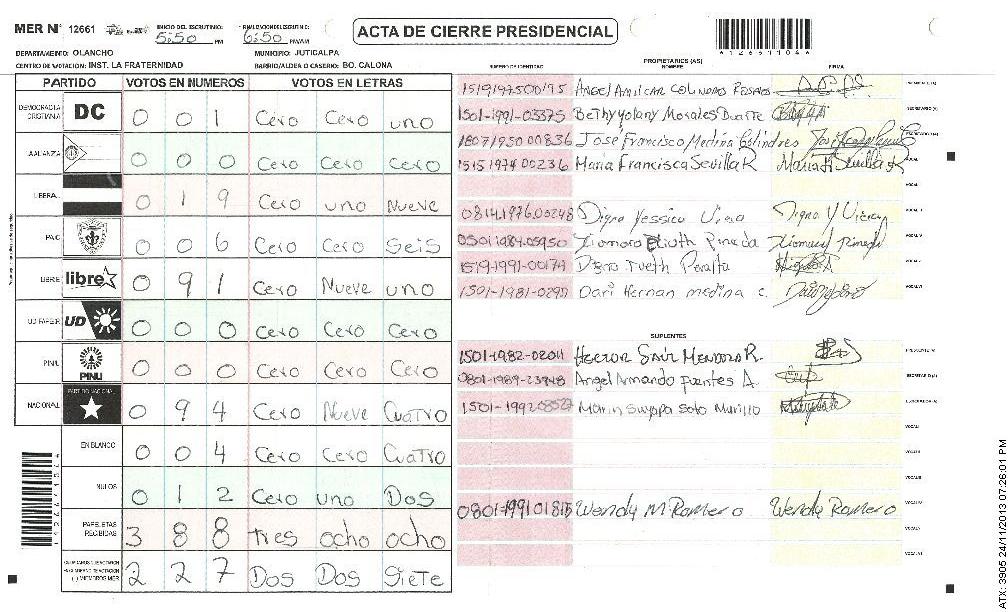 MER Nº 12661
INICIO DEL ESCRUTINIO: 5:50 PM
FINALIZACION DEL ESCRUTINIO: 6:50 PM/AM
ACTA DE CIERRE PRESIDENCIAL
DEPARTAMENTO: OLANCHO MUNICIPIO: JUTICALPA
CENTRO DE VOTACION: INST. LA FRATERNIDAD BARRIO/ALDEA O CASERIO: BO. CALONA
PARTIDO VOTOS EN NUMEROS VOTOS EN LETRAS
DEMOCRACIA CRISTIANA DC 0 0 1 Cero Cero uno
ALIANZA 0 0 0 Cero Cero Cero
LIBERAL 0 1 9 Cero uno Nueve
PAC 0 0 6 Cero Cero Seis
LIBRE libre 0 9 1 Cero Nueve uno
UD FAPER UD 0 0 0 Cero Cero Cero
PINU PINU 0 0 0 Cero Cero Cero
NACIONAL PARTIDO NACIONAL 0 9 4 Cero Nueve Cuatro
EN BLANCO 0 0 4 Cero Cero Cuatro
NULOS 0 1 2 Cero uno Dos
PAPELETAS RECIBIDAS 3 8 8 tres ocho ocho
2 2 7 Dos Dos Siete
NUMERO DE IDENTIDAD PROPIETARIOS (AS) NOMBRE FIRMA
1519197500195 Angel Amilcar Colindres Rosales
1501-1991-03375 Bethy Yolany Morales Duarte
1807195000836 José Francisco Medina Colindres
1515197400236 Maria Francisca Sevilla R Maria F Sevilla R
VOCAL I
0814197600248 Digna Yessica
0501-1984-05950 Xiomara Pineda Xiomara Pineda
1519-1991-00174 Peralta
1501-1981-0290 Dari Hernan medina c.
SUPLENTES
1501-1982-02011 Hector Saul Mendoza R.
0801-1989-23948 Angel Armando fuentes A.
1501-1992 Marin Suyapa Soto Murillo
0801-1991 01815 Wendy M Romero Wendy Romero
ATX: 3905 24/11/2013 07:26:01 PM